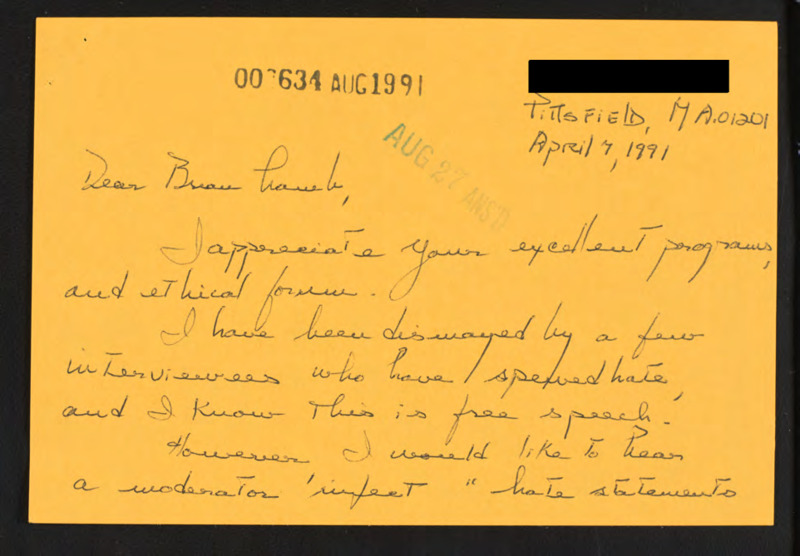 00 634 AUG1991
PITTSFIELD, MA.01201
April 7, 1991
AUG 27 ANS'D
Dear Brian Lamb,
I appreciate your excellent programs,
and ethical forum.
I have been dismayed by a few
interviewees who have spewed hate,
and I know this is free speech.
However I would like to hear
a moderator "inject" hate statements